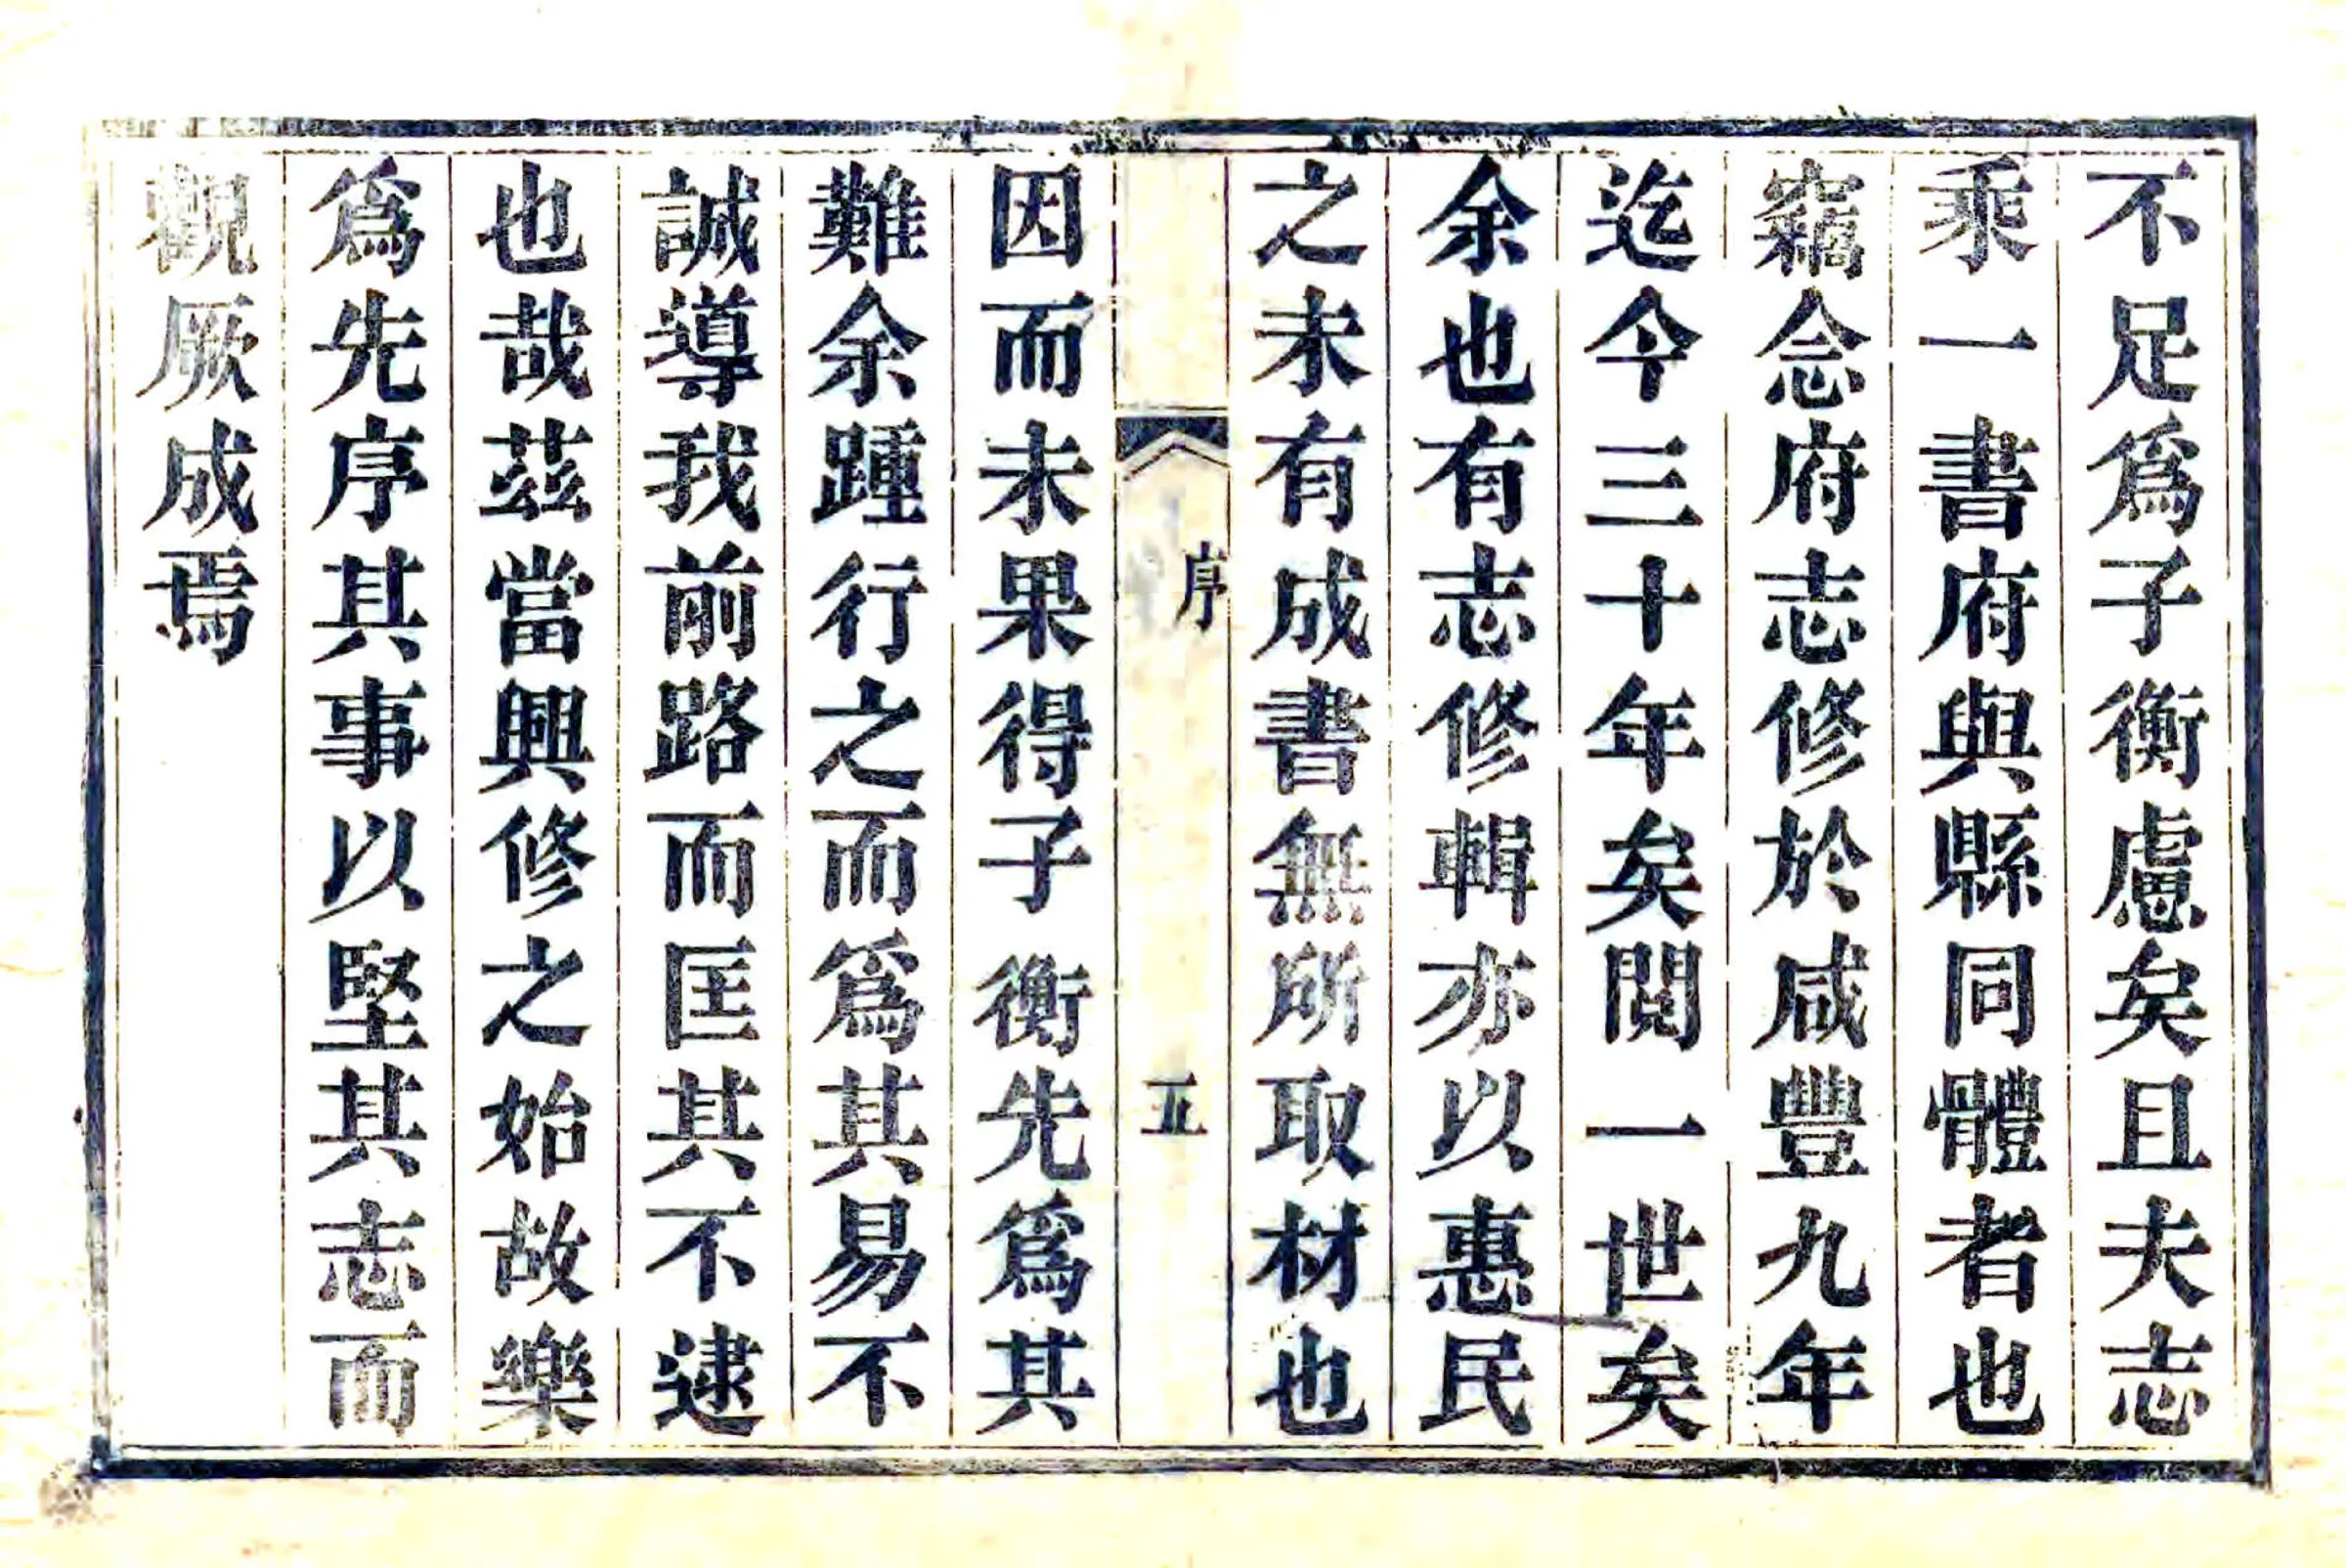 不足爲子衡慮矣且夫志
乘一書府與縣同體者也
竊念府志修於咸豐九年
迄今三十年矣閱一世矣
余也有志修輯亦以惠民
之未有成書無所取材也
序
五
因而未果得子衡先爲其
難余踵行之而爲其易不
誠導我前路而匡其不逮
也哉茲當興修之始故樂
爲先序其事以堅其志而
觀厥成焉